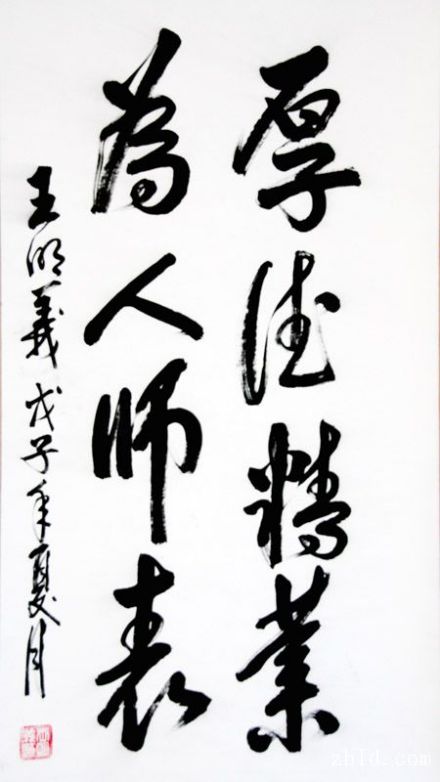 厚德精業
為人師表
王明義 戊子年夏月
zhld.com